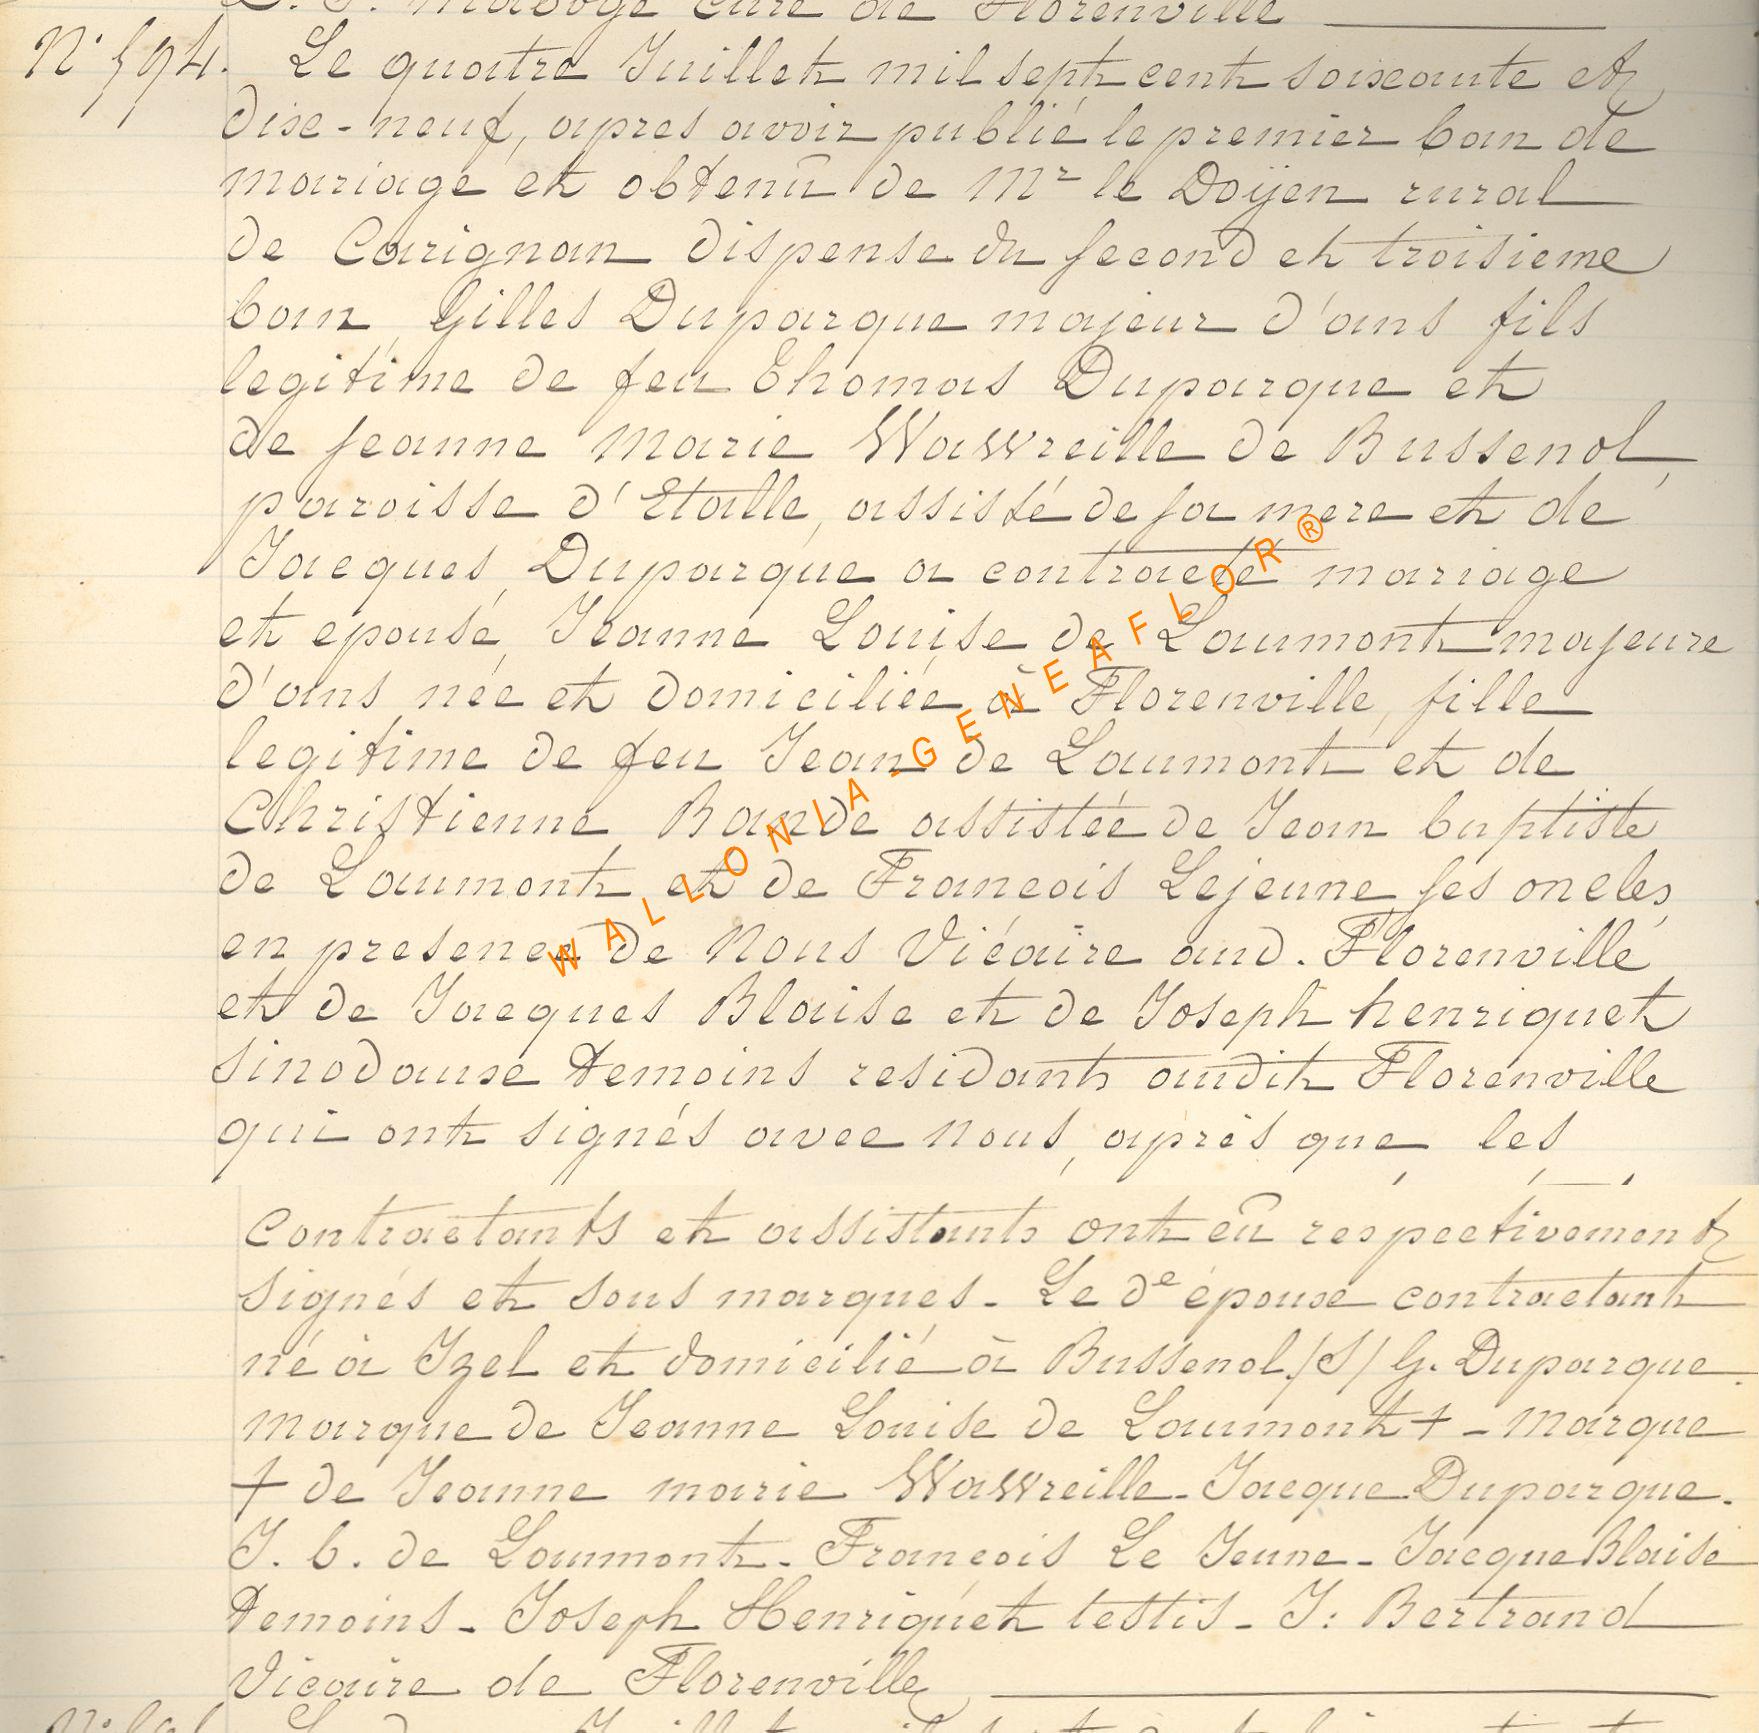 curé de Florenville
N° 594. Le quatre Juillet mil sept cent soixante et
dixe-neuf, apres avoir publié le premier ban de
mariage et obtenû de Mr le Doÿen rural
de Carignan dispense du second et troisieme
ban, Gilles Duparque majeur d'ans fils
legitime de feu Thomas Duparque et
de jeanne Marie Wawreille de Bussenol,
paroisse d'Etalle, assisté de sa mere et de
Jacques Duparque a contracté mariage
et epousé Jeanne Louise de Laumont majeure
d'ans née et domiciliée à Florenville, fille
legitime de feu Jean de Laumont et de
Christienne Bande assistée de Jean baptiste
de Laumont et de Francois Lejeune ses oncles,
en presence de Nous Vicaire aud. Florenville
et de Jacques Blaise et de Joseph henriquet
sinodaux temoins residants audit Florenville
qui ont signés avec nous, après que les
contractants et assistants ont eû respectivement
signés et sous marqués. Le de époux contractant
né à Izel et domicilié à Bussenol /S/ G. Duparque.
marque de Jeanne Louise de Laumont + - Marque
+ de Jeanne marie Wawreille - Jacque Duparque.
J. b. de Laumont - Francois Le Jeune - Jacque Blaise
temoins - Joseph Henriquet testis - J: Bertrand
Vicaire de Florenville
WALLONIA-GENEAFLOR®